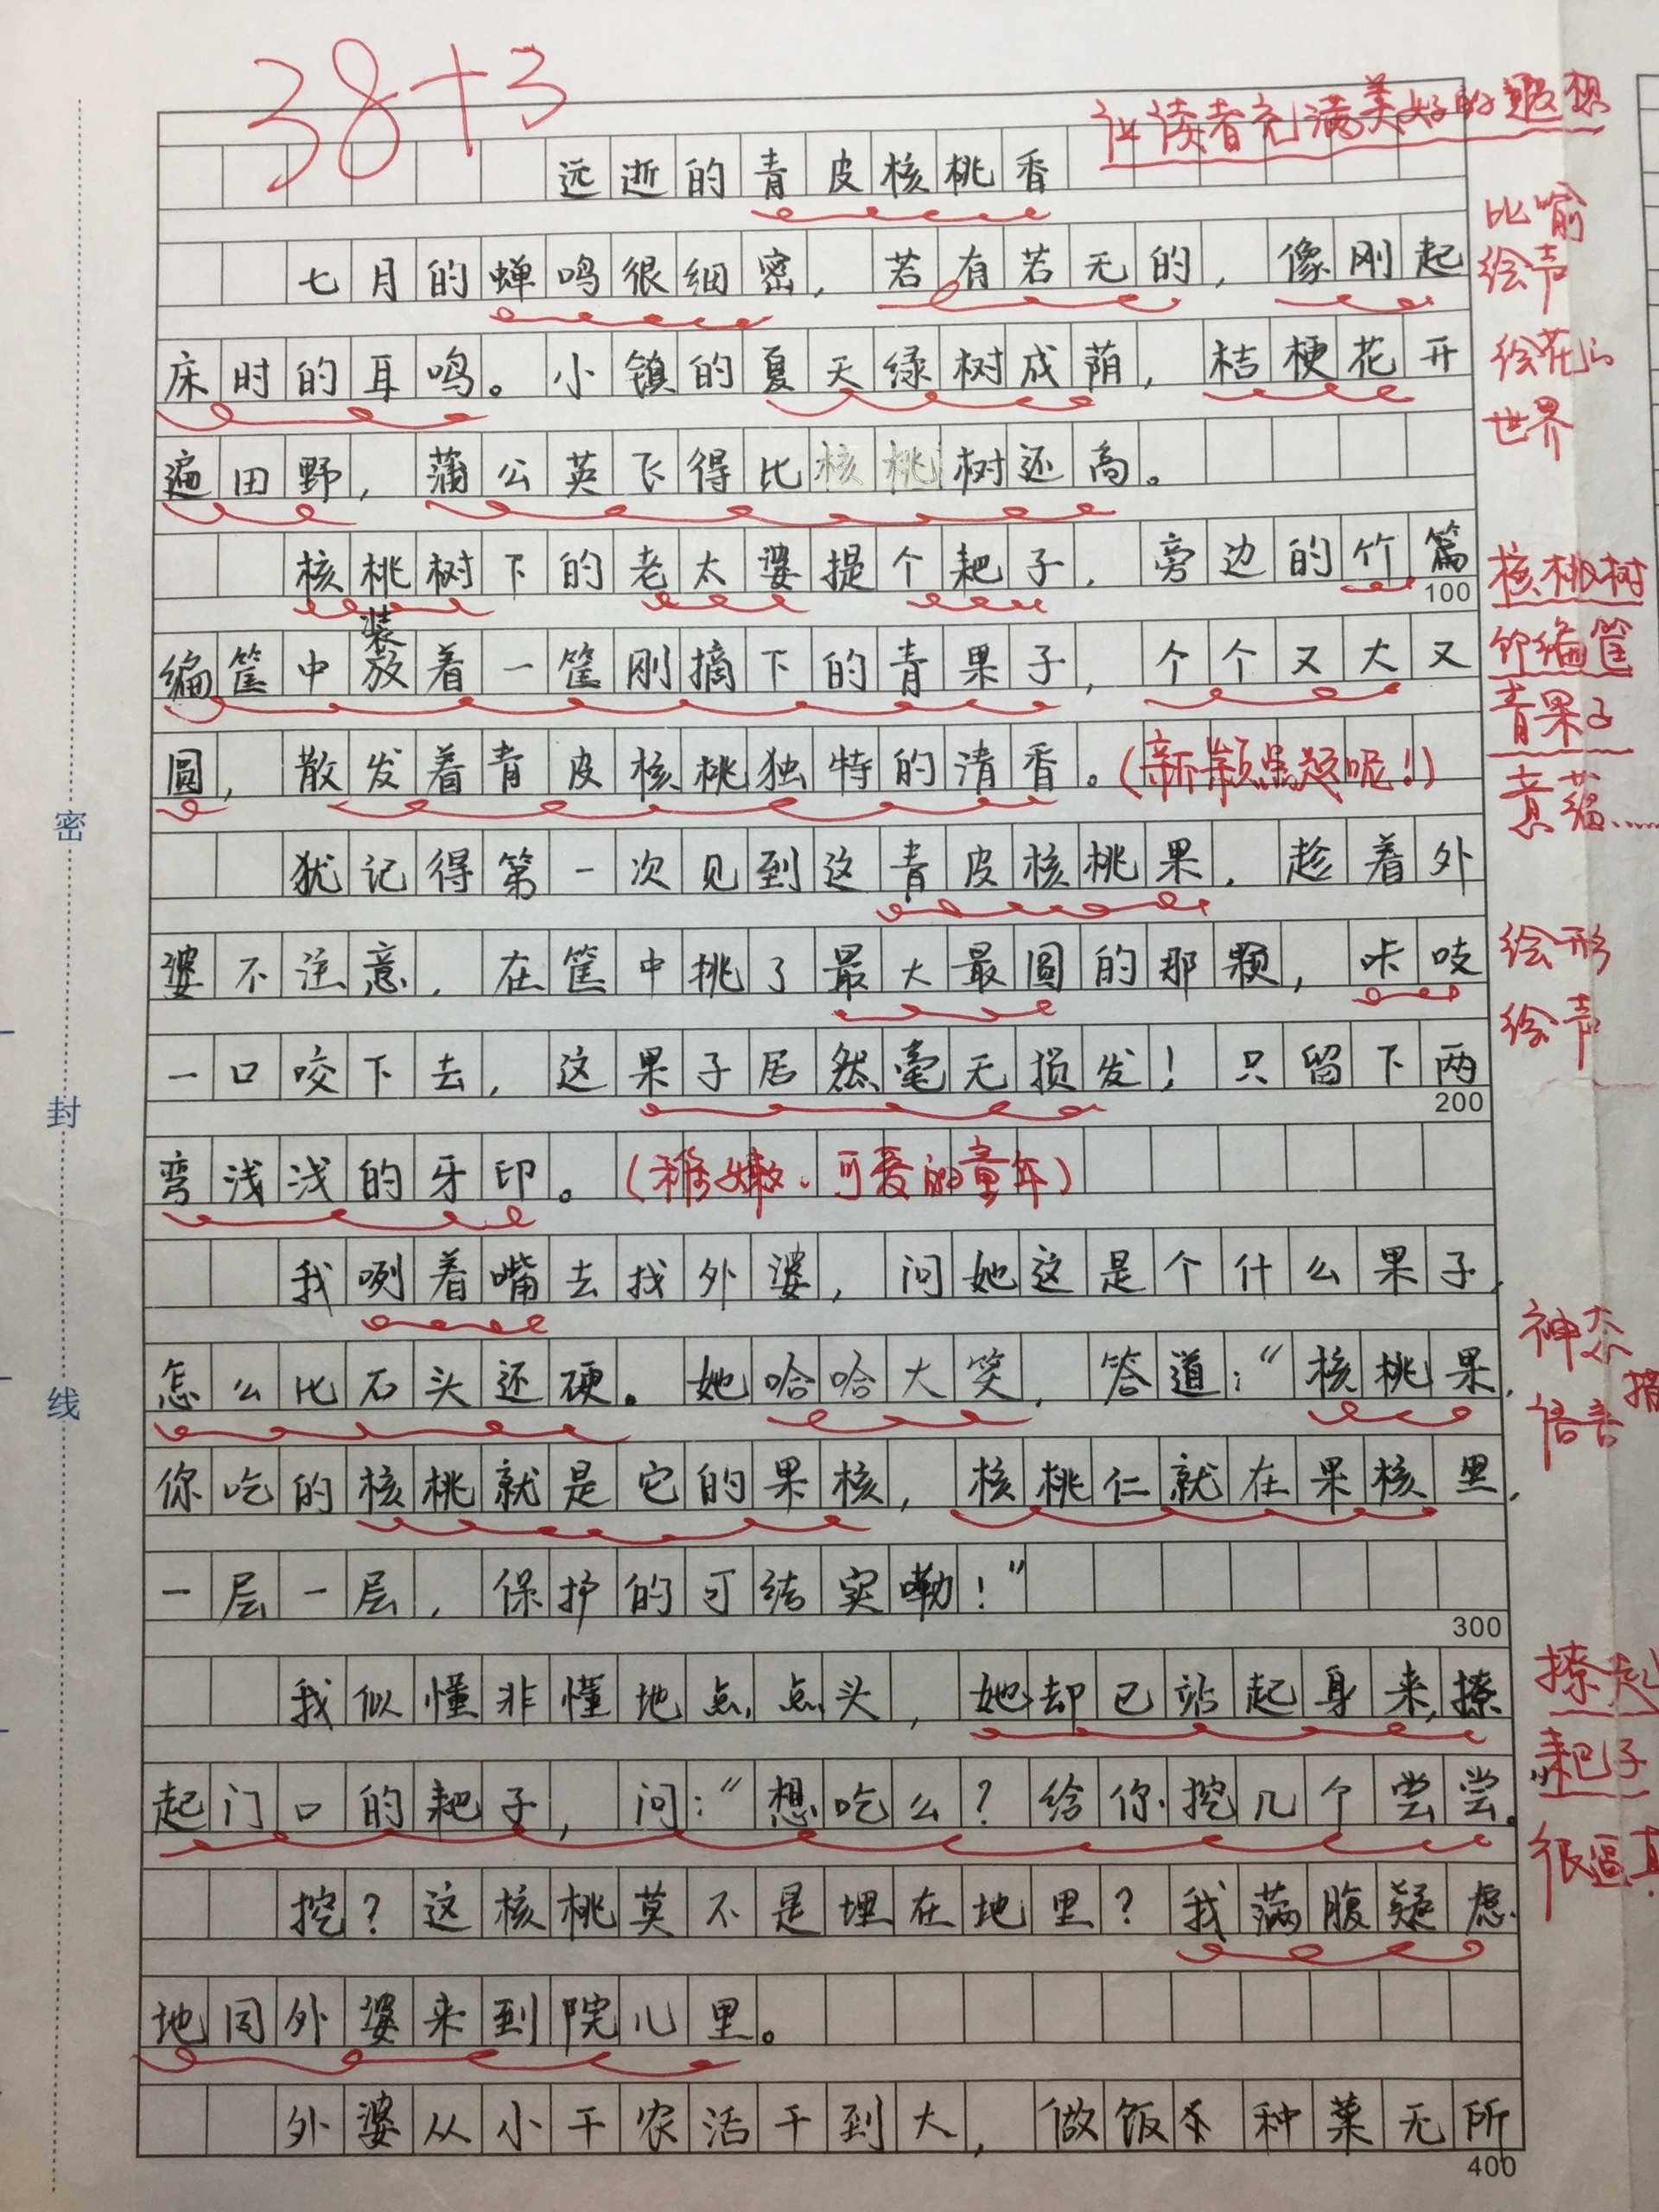 38+3
让读者充满美好的遐想
远逝的青皮核桃香
比喻
绘声
七月的蝉鸣很细密，若有若无的，像刚起
床时的耳鸣。小镇的夏天绿树成荫，桔梗花开
绘花的
世界
遍田野，蒲公英飞得比核桃树还高。
核桃树下的老太婆提个耙子，旁边的竹篇
100
核桃树
装
编筐中放着一筐刚摘下的青果子，个个又大又
竹编筐
青果子
圆，散发着青皮核桃独特的清香。(新颖点题呢！)
意蕴……
犹记得第一次见到这青皮核桃果，趁着外
婆不注意，在筐中挑了最大最圆的那颗，咔吱
绘形
绘声
一口咬下去，这果子居然毫无损发！只留下两
200
弯浅浅的牙印。(稚嫩、可爱的童年)
我咧着嘴去找外婆，问她这是个什么果子，
神态
怎么比石头还硬。她哈哈大笑，答道：“核桃果，
语言
描
你吃的核桃就是它的果核，核桃仁就在果核里，
一层一层，保护的可结实嘞！”
300
我似懂非懂地点点头，她却已站起身来，撩
撩起
起门口的耙子，问：“想吃么？给你挖几个尝尝。
耙子
很逼真
挖？这核桃莫不是埋在地里？我满腹疑虑
地同外婆来到院儿里。
外婆从小干农活干到大，做饭种菜无所
400
密
封
线